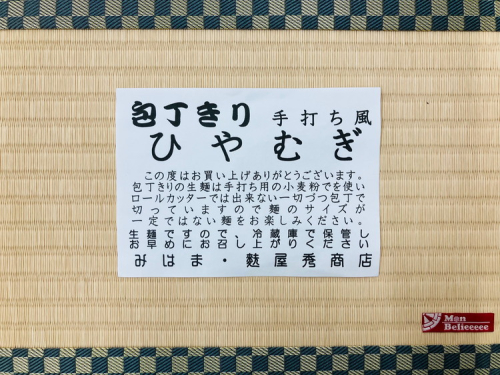 包丁きり 手打ち風
ひやむぎ
この度はお買い上げありがとうございます。
包丁きりの生麺は手打ち用の小麦粉でを使い
ロールカッターでは出来ない一切づつ包丁で
切っていますので麺のサイズが
一定ではない麺をお楽しみください。
生麺ですので、冷蔵庫で保管し
お早めにお召し上がりください
みはま・麩屋秀商店
M@n
Belieeeee